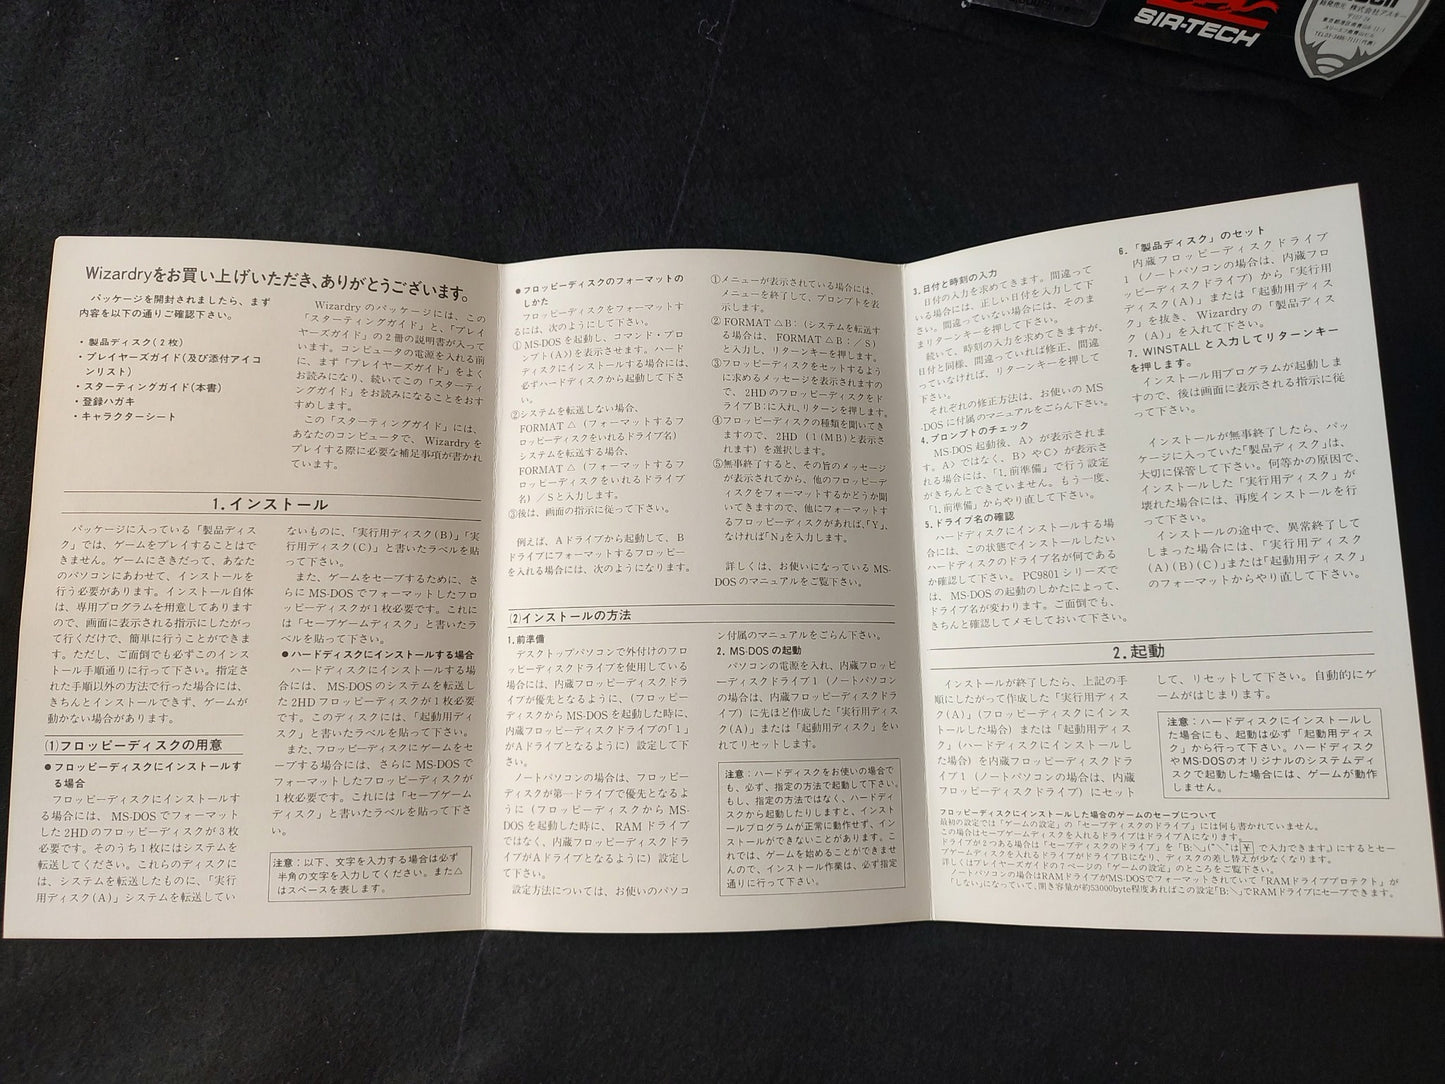 Wizardryをお買い上げいただき、ありがとうございます。
パッケージを開封されましたら、まず
内容を以下の通りご確認下さい。
・製品ディスク(2枚)
・プレイヤーズガイド(及び添付アイコ
ンリスト)
・スターティングガイド(本書)
・登録ハガキ
・キャラクターシート
Wizardry のパッケージには、この
「スターティングガイド」と、「プレイ
ヤーズガイド」の2冊の説明書が入って
います。コンピュータの電源を入れる前
に、まず「プレイヤーズガイド」をよく
お読みになり、続いてこの「スターティ
ングガイド」をお読みになることをおす
すめします。
この「スターティングガイド」には、
あなたのコンピュータで、Wizardry を
プレイする際に必要な補足事項が書かれ
ています。
1.インストール
パッケージに入っている「製品ディス
ク」では、ゲームをプレイすることはで
きません。ゲームにさきだって、あなた
のパソコンにあわせて、インストールを
行う必要があります。インストール自体
は、専用プログラムを用意してあります
ので、画面に表示される指示にしたがっ
て行くだけで、簡単に行うことができま
す。ただし、ご面倒でも必ずこのインス
トール手順通りに行って下さい。指定さ
れた手順以外の方法で行った場合には、
きちんとインストールできず、ゲームが
動かない場合があります。
(1)フロッピーディスクの用意
●フロッピーディスクにインストールす
る場合
フロッピーディスクにインストールす
る場合には、MS-DOSでフォーマット
した2HDのフロッピーディスクが3枚
必要です。そのうち1枚にはシステムを
転送してください。これらのディスクに
は、システムを転送したものに、「実行
用ディスク(A)」システムを転送してい
ないものに、「実行用ディスク(B)」「実
行用ディスク(C)」と書いたラベルを貼
って下さい。
また、ゲームをセーブするために、さ
らに MS-DOS でフォーマットしたフロ
ッピーディスクが1枚必要です。これに
は「セーブゲームディスク」と書いたラ
ベルを貼って下さい。
●ハードディスクにインストールする場合
ハードディスクにインストールする場
合には、MS-DOSのシステムを転送し
た2HDフロッピーディスクが1枚必要
です。このディスクには、「起動用ディ
スク」と書いたラベルを貼って下さい。
また、フロッピーディスクにゲームをセ
ーブする場合には、さらに MS-DOS で
フォーマットしたフロッピーディスクが
1枚必要です。これには「セーブゲーム
ディスク」と書いたラベルを貼って下さ
い。
注意:以下、文字を入力する場合は必ず
半角の文字を入力してください。また△
はスペースを表します。
●フロッピーディスクのフォーマットの
しかた
フロッピーディスクをフォーマットす
るには、次のようにして下さい。
①MS-DOSを起動し、コマンド・プロ
ンプト(A>)を表示させます。ハード
ディスクにインストールする場合には、
必ずハードディスクから起動して下さ
い。
②システムを転送しない場合、
FORMAT △ (フォーマットするフ
ロッピーディスクをいれるドライブ名)
システムを転送する場合、
FORMAT △ (フォーマットするフ
ロッピーディスクをいれるドライブ
名)/Sと入力します。
③後は、画面の指示に従って下さい。
例えば、Aドライブから起動して、B
ドライブにフォーマットするフロッピー
を入れる場合には、次のようになります。
①メニューが表示されている場合には、
メニューを終了して、プロンプトを表
示します。
② FORMAT △B:(システムを転送す
る場合は、FORMAT △B:/S)
と入力し、リターンキーを押します。
③フロッピーディスクをセットするよう
に求めるメッセージを表示されますの
で、2HDのフロッピーディスクをド
ライブB:に入れ、リターンを押します。
④フロッピーディスクの種類を聞いてき
ますので、2HD(1(MB)と表示さ
れます)を選択します。
⑤無事終了すると、その旨のメッセージ
が表示されてから、他のフロッピーデ
ィスクをフォーマットするかどうか聞
いてきますので、他にフォーマットす
るフロッピーディスクがあれば、「Y」、
なければ「N」を入力します。
詳しくは、お使いになっている MS-
DOSのマニュアルをご覧下さい。
(2)インストールの方法
1.前準備
デスクトップパソコンで外付けのフロ
ッピーディスクドライブを使用している
場合には、内蔵フロッピーディスクドラ
イブが優先となるように、(フロッピー
ディスクから MS-DOS を起動した時に、
内蔵フロッピーディスクドライブの「1」
がAドライブとなるように)設定して下
さい。
ノートパソコンの場合は、フロッピー
ディスクが第一ドライブで優先となるよ
うに(フロッピーディスクから MS-
DOS を起動した時に、RAM ドライブ
ではなく、内蔵フロッピーディスクドラ
イブがAドライブとなるように)設定し
て下さい。
設定方法については、お使いのパソコ
ン付属のマニュアルをごらん下さい。
2. MS-DOS の起動
パソコンの電源を入れ、内蔵フロッピ
ーディスクドライブ1(ノートパソコン
の場合は、内蔵フロッピーディスクドラ
イブ)に先ほど作成した「実行用ディス
ク(A)」または「起動用ディスク」をい
れてリセットします。
注意:ハードディスクをお使いの場合で
も、必ず、指定の方法で起動して下さい。
もし、指定の方法ではなく、ハードディ
スクから起動したりしますと、インスト
ールプログラムが正常に動作せず、イン
ストールができないことがあります。こ
れでは、ゲームを始めることができませ
んので、インストール作業は、必ず指定
通りに行って下さい。
3.日付と時刻の入力
日付の入力を求めてきます。間違って
いる場合には、正しい日付を入力して下
さい。間違っていない場合には、そのま
まリターンキーを押して下さい。
続いて、時刻の入力を求めてきますが、
日付と同様、間違っていれば修正、間違
っていなければ、リターンキーを押して
下さい。
それぞれの修正方法は、お使いの MS
-DOS に付属のマニュアルをごらん下さい。
4.プロンプトのチェック
MS-DOS 起動後、A> が表示されま
す。A> ではなく、B> や C> が表示さ
れる場合には、「1.前準備」で行う設定
がきちんとできていません。もう一度、
「1.前準備」からやり直して下さい。
5.ドライブ名の確認
ハードディスクにインストールする場
合には、この状態でインストールしたい
ハードディスクのドライブ名が何である
か確認して下さい。PC9801 シリーズで
は、MS-DOS の起動のしかたによって、
ドライブ名が変わります。ご面倒でも、
きちんと確認してメモしておいて下さい。
6.「製品ディスク」のセット
内蔵フロッピーディスクドライブ
1(ノートパソコンの場合は、内蔵フロ
ッピーディスクドライブ)から「実行用
ディスク(A)」または「起動用ディス
ク」を抜き、Wizardry の「製品ディス
ク(A)」を入れて下さい。
7. WINSTALL と入力してリターンキー
を押します。
インストール用プログラムが起動しま
すので、後は画面に表示される指示に従
って下さい。
インストールが無事終了したら、パッ
ケージに入っていた「製品ディスク」は、
大切に保管して下さい。何等かの原因で、
インストールした「実行用ディスク」が
壊れた場合には、再度インストールを行
って下さい。
インストールの途中で、異常終了して
しまった場合には、「実行用ディスク
(A)(B)(C)」または「起動用ディスク」
のフォーマットからやり直して下さい。
2.起動
インストールが終了したら、上記の手
順にしたがって作成した「実行用ディス
ク(A)」(フロッピーディスクにインス
トールした場合)または「起動用ディス
ク」(ハードディスクにインストールし
た場合)を内蔵フロッピーディスクドラ
イブ1(ノートパソコンの場合は、内蔵
フロッピーディスクドライブ)にセット
して、リセットして下さい。自動的にゲ
ームがはじまります。
注意:ハードディスクにインストールし
た場合にも、起動は必ず「起動用ディス
ク」から行って下さい。ハードディスク
やMS-DOSのオリジナルのシステムディ
スクで起動した場合には、ゲームが動作
しません。
フロッピーディスクにインストールした場合のゲームのセーブについて
最初の設定では「ゲームの設定」の「セーブディスクのドライブ」には何も書かれていません。
この場合はセーブゲームディスクを入れるドライブはドライブAになります。
ドライブが2つある場合は「セーブディスクのドライブ」を「B:＼」("＼"は¥で入力できます。)にするとセー
ブゲームディスクを入れるドライブがドライブBになり、ディスクの差し替えが少なくなります。
詳しくはプレイヤーズガイドの7ページの「ゲームの設定」のところをご覧下さい。
ノートパソコンの場合はRAMドライブがMS-DOSでフォーマットされていて「RAMドライブプロテクト」が
「しない」になっていて、開き容量が約53000byte程度あればこの設定「B:＼」でRAMドライブにセーブできます。
SIR-TECH
株式会社アスキー